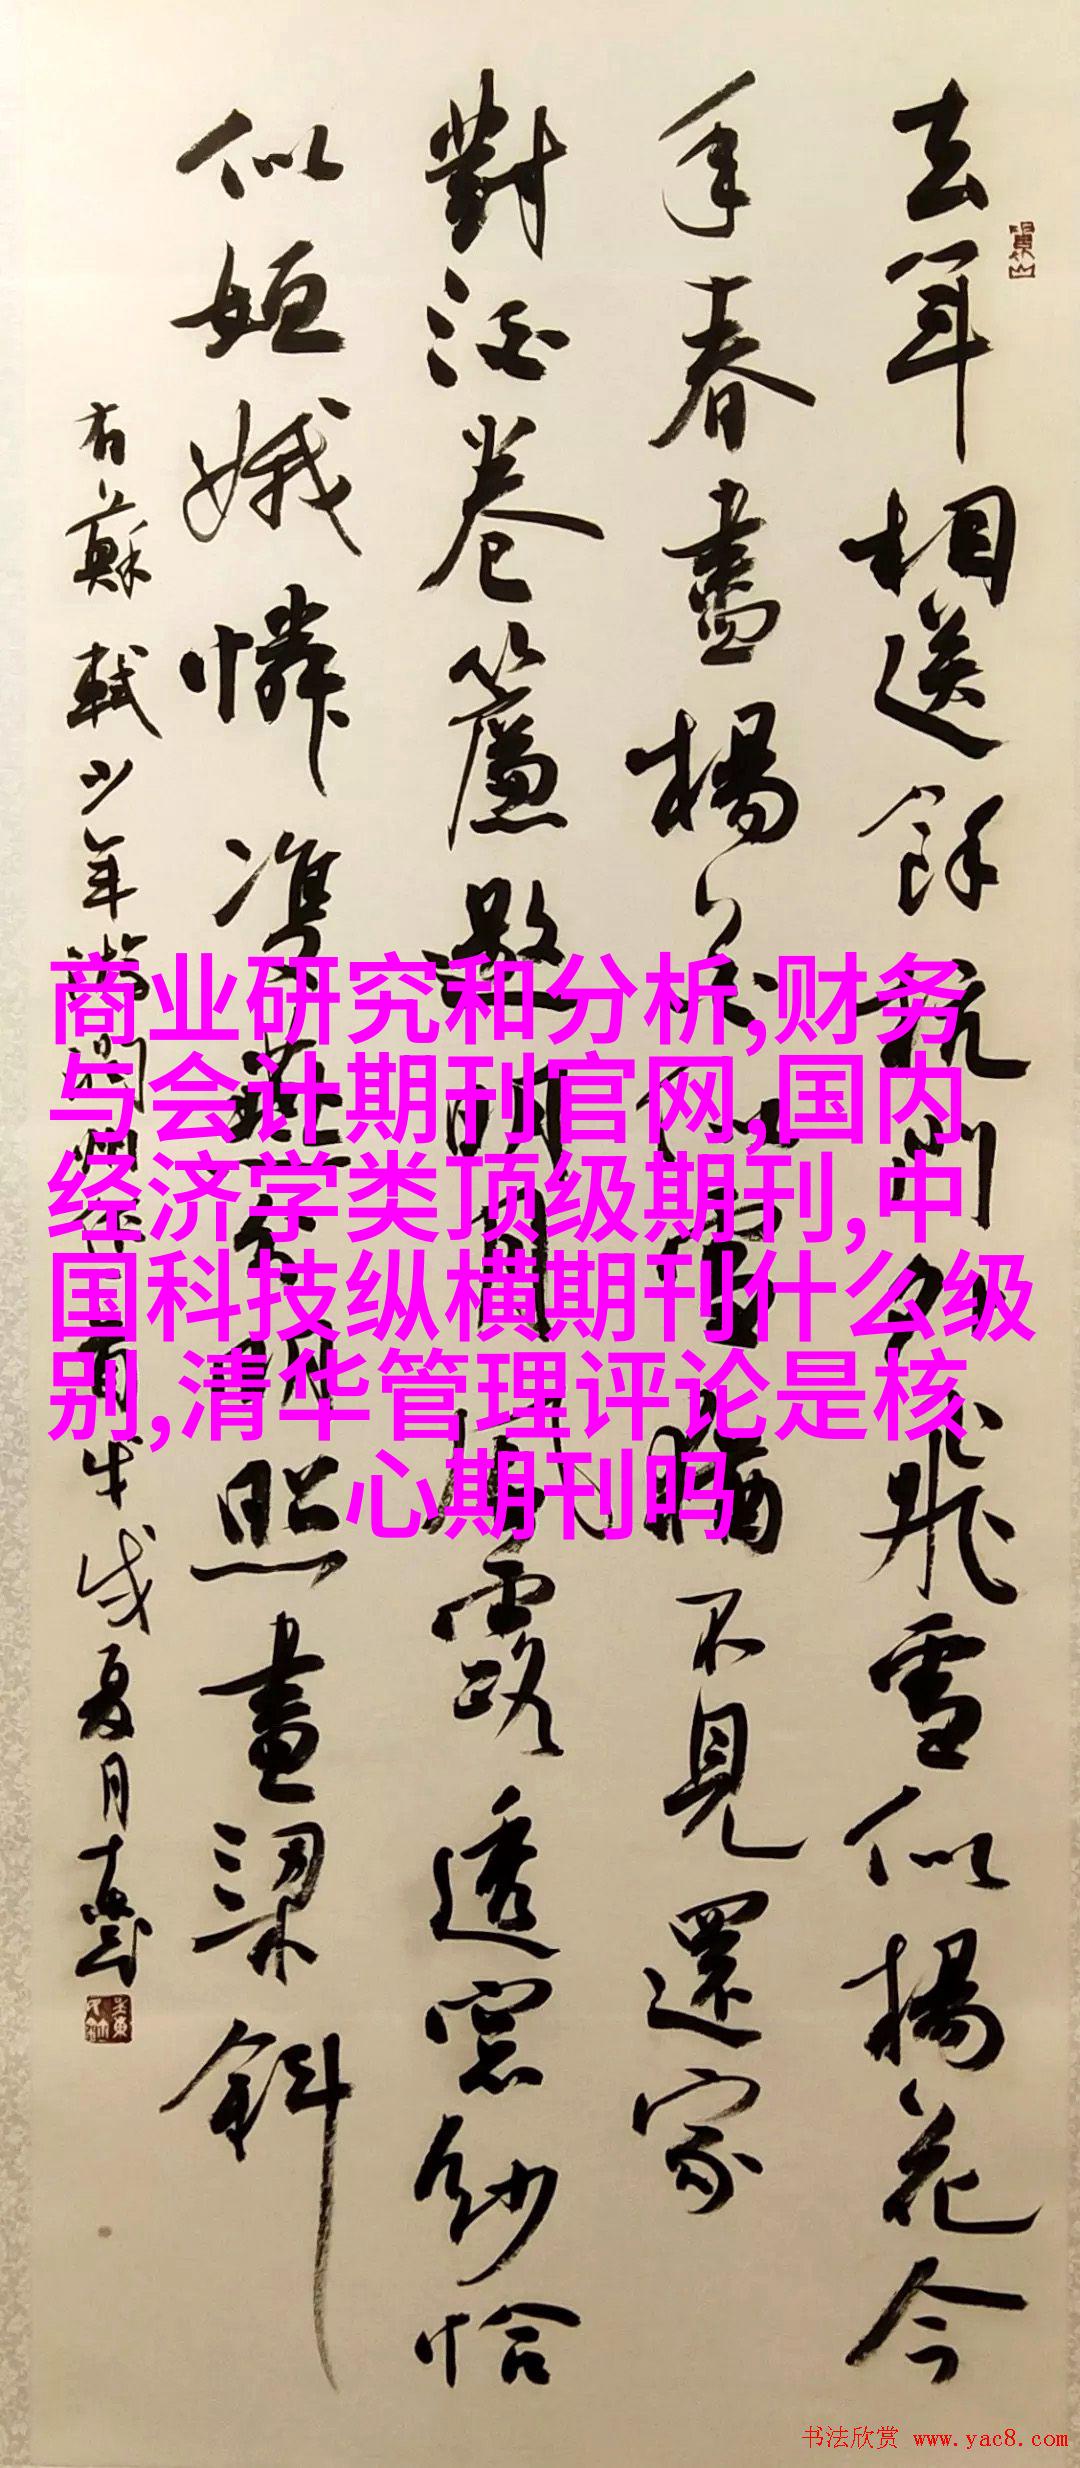 去年相送餘杭門外飛雪似楊花今
年春盡楊花似雪猶不見還家
對酒卷簾邀明月風露透窗紗恰
似姮娥憐雙燕分明照畫梁斜
右蘇軾少年游潤州作 戊戌夏月
商业研究和分析,财务
与会计期刊官网,国内
经济学类顶级期刊,中
国科技纵横期刊什么级
别,清华管理评论是核
心期刊吗
书法欣赏 www.yac8.com